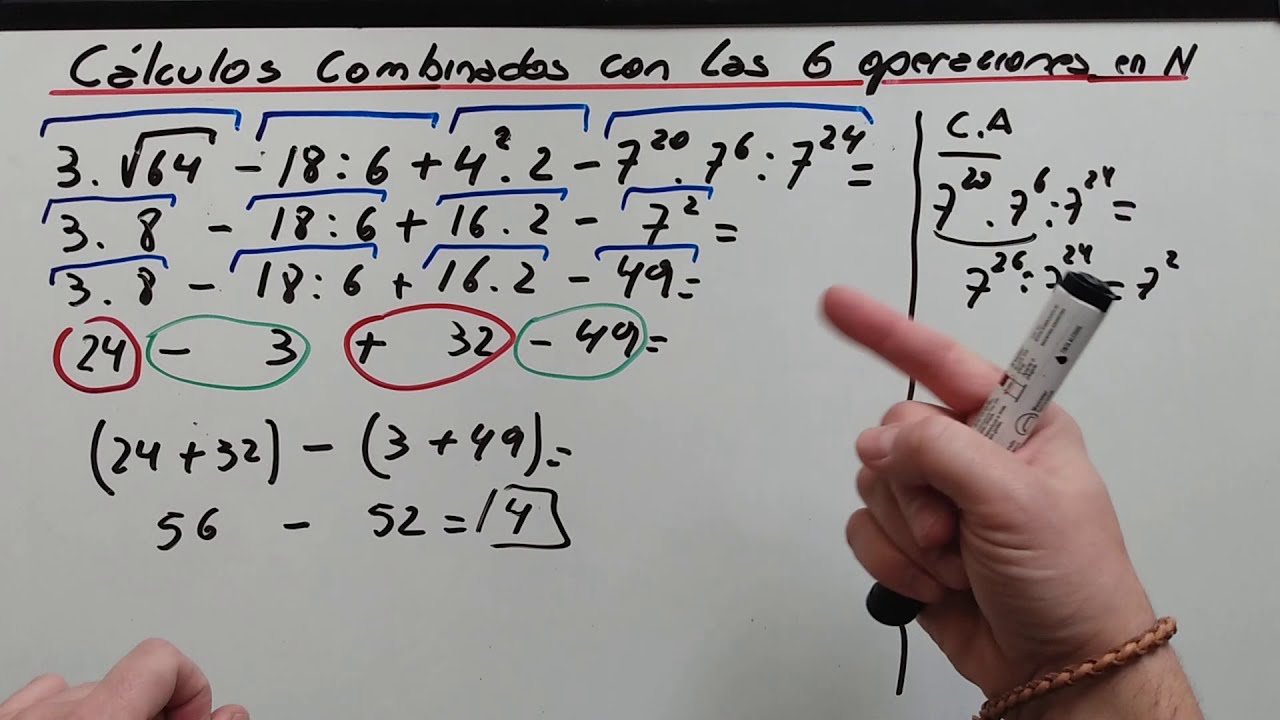 Cálculos Combinados con las 6 operaciones en N
3.√64 - 18:6 + 4².2 - 7²⁰.7⁶:7²⁴=
3. 8 - 18:6 + 16.2 - 7² =
3. 8 - 18:6 + 16.2 - 49=
24 - 3 + 32 - 49=
(24+32) - (3+49)=
56 - 52 = 4
C.A
7²⁰.7⁶:7²⁴=
7²⁶:7²⁴=7²